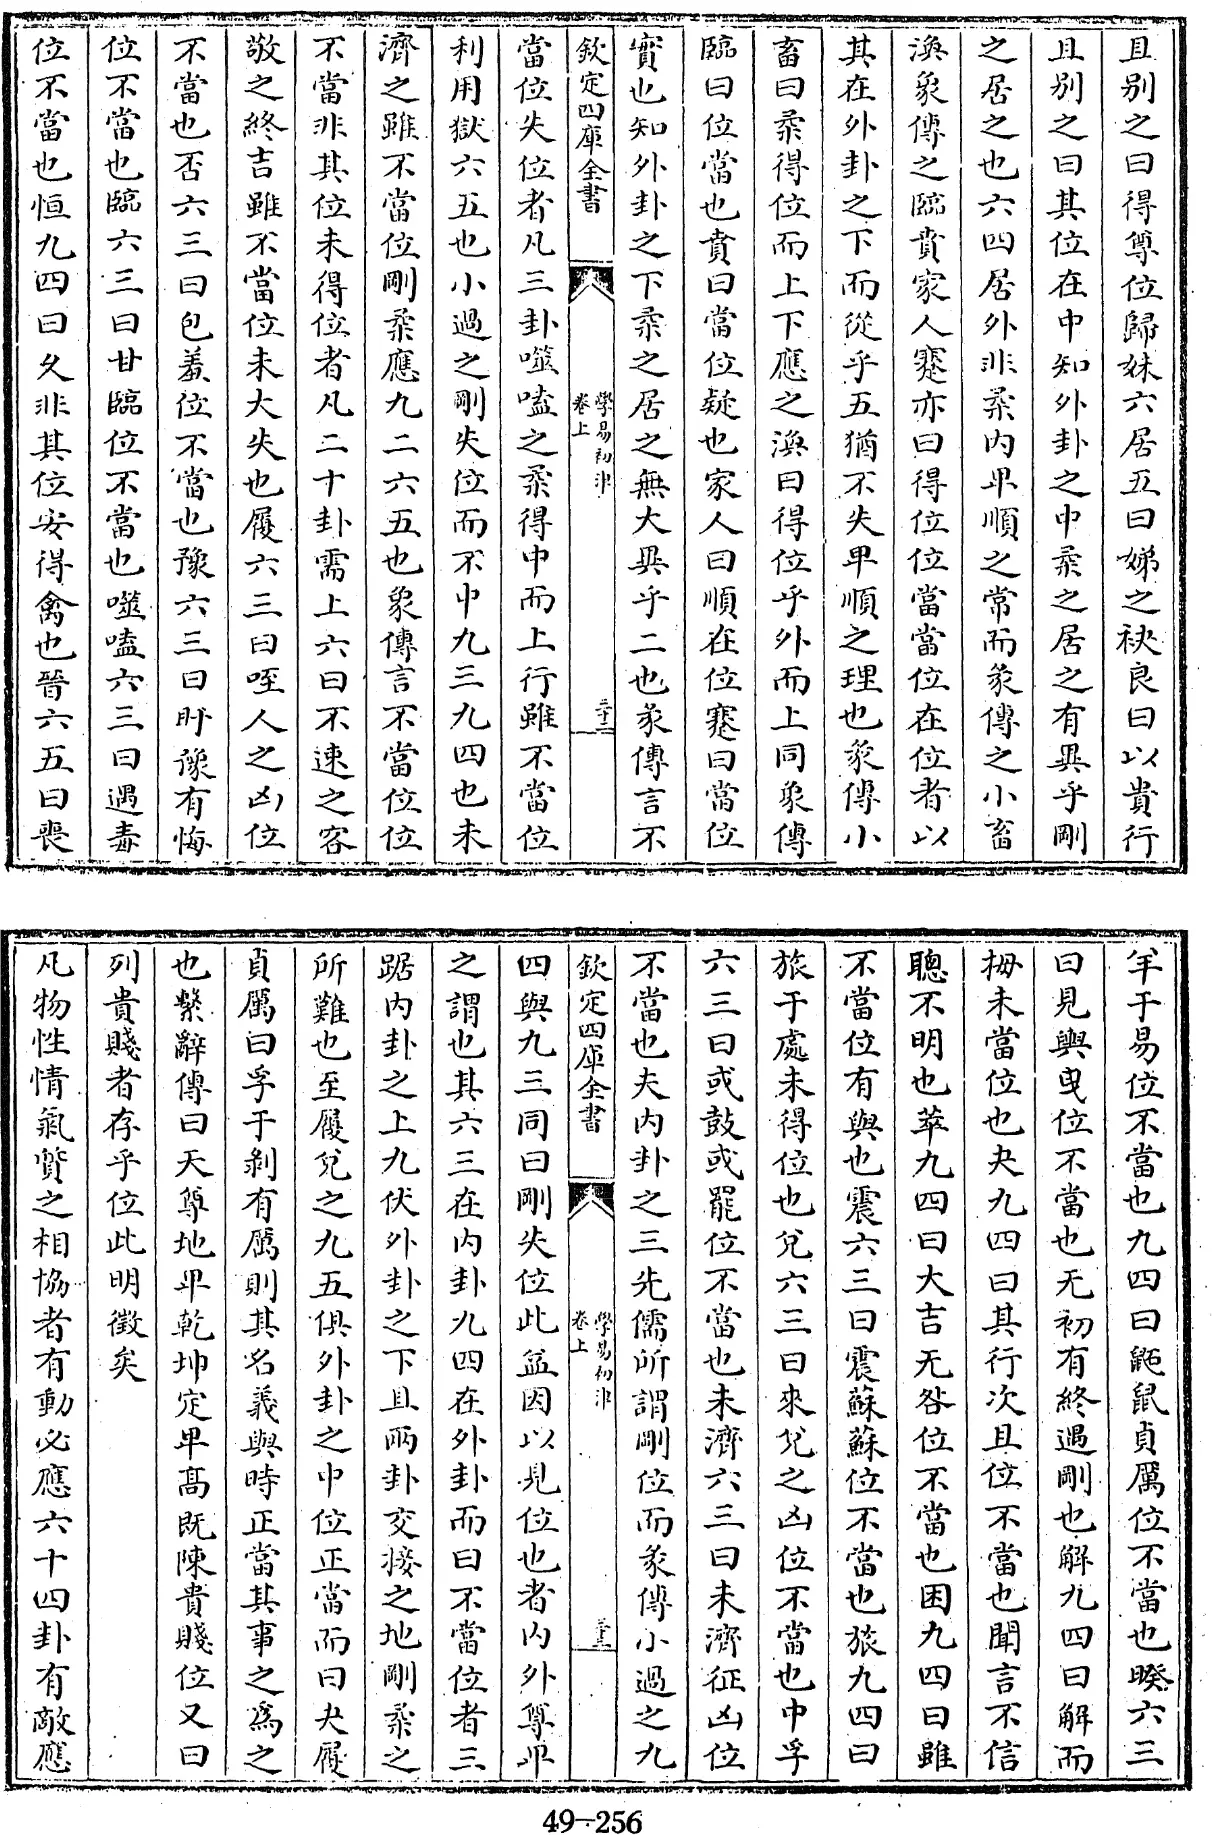 且别之曰得尊位歸妹六居五曰娣之袂良曰以貴行
且别之曰其位在中知外卦之中柔之居之有異乎剛
之居之也六四居外非柔内卑順之常而彖傳之小畜
渙象傳之臨賁家人蹇亦曰得位位當當位在位者以
其在外卦之下而從乎五猶不失卑順之理也彖傳小
畜曰柔得位而上下應之渙曰得位乎外而上同象傳
臨曰位當也賁曰當位疑也家人曰順在位蹇曰當位
實也知外卦之下柔之居之無大異乎二也彖傳言不
欽定四庫全書
學易初津
卷上
三十二
當位失位者凡三卦噬嗑之柔得中而上行雖不當位
利用獄六五也小過之剛失位而不中九三九四也未
濟之雖不當位剛柔應九二六五也象傳言不當位位
不當非其位未得位者凡二十卦需上六曰不速之客
敬之終吉雖不當位未大失也履六三曰咥人之凶位
不當也否六三曰包羞位不當也豫六三曰盱豫有悔
位不當也臨六三曰甘臨位不當也噬嗑六三曰遇毒
位不當也恒九四曰久非其位安得禽也晉六五曰喪
羊于易位不當也九四曰鼫鼠貞厲位不當也睽六三
曰見輿曳位不當也无初有終遇剛也解九四曰解而
拇未當位也夬九四曰其行次且位不當也聞言不信
聰不明也萃九四曰大吉无咎位不當也困九四曰雖
不當位有與也震六三曰震蘇蘇位不當也旅九四曰
旅于處未得位也兌六三曰來兌之凶位不當也中孚
六三曰或鼓或罷位不當也未濟六三曰未濟征凶位
不當也夫内卦之三先儒所謂剛位而彖傳小過之九
欽定四庫全書
學易初津
卷上
三十三
四與九三同曰剛失位此益因以見位也者内外尊卑
之謂也其六三在内卦九四在外卦而曰不當位者三
踞内卦之上九伏外卦之下且兩卦交接之地剛柔之
所難也至履兌之九五俱外卦之中位正當而曰夬履
貞厲曰孚于剝有厲則其名義與時正當其事之為之
也繫辭傳曰天尊地卑乾坤定卑高既陳貴賤位又曰
列貴賤者存乎位此明徵矣
凡物性情氣質之相協者有動必應六十四卦有敵應
49-256